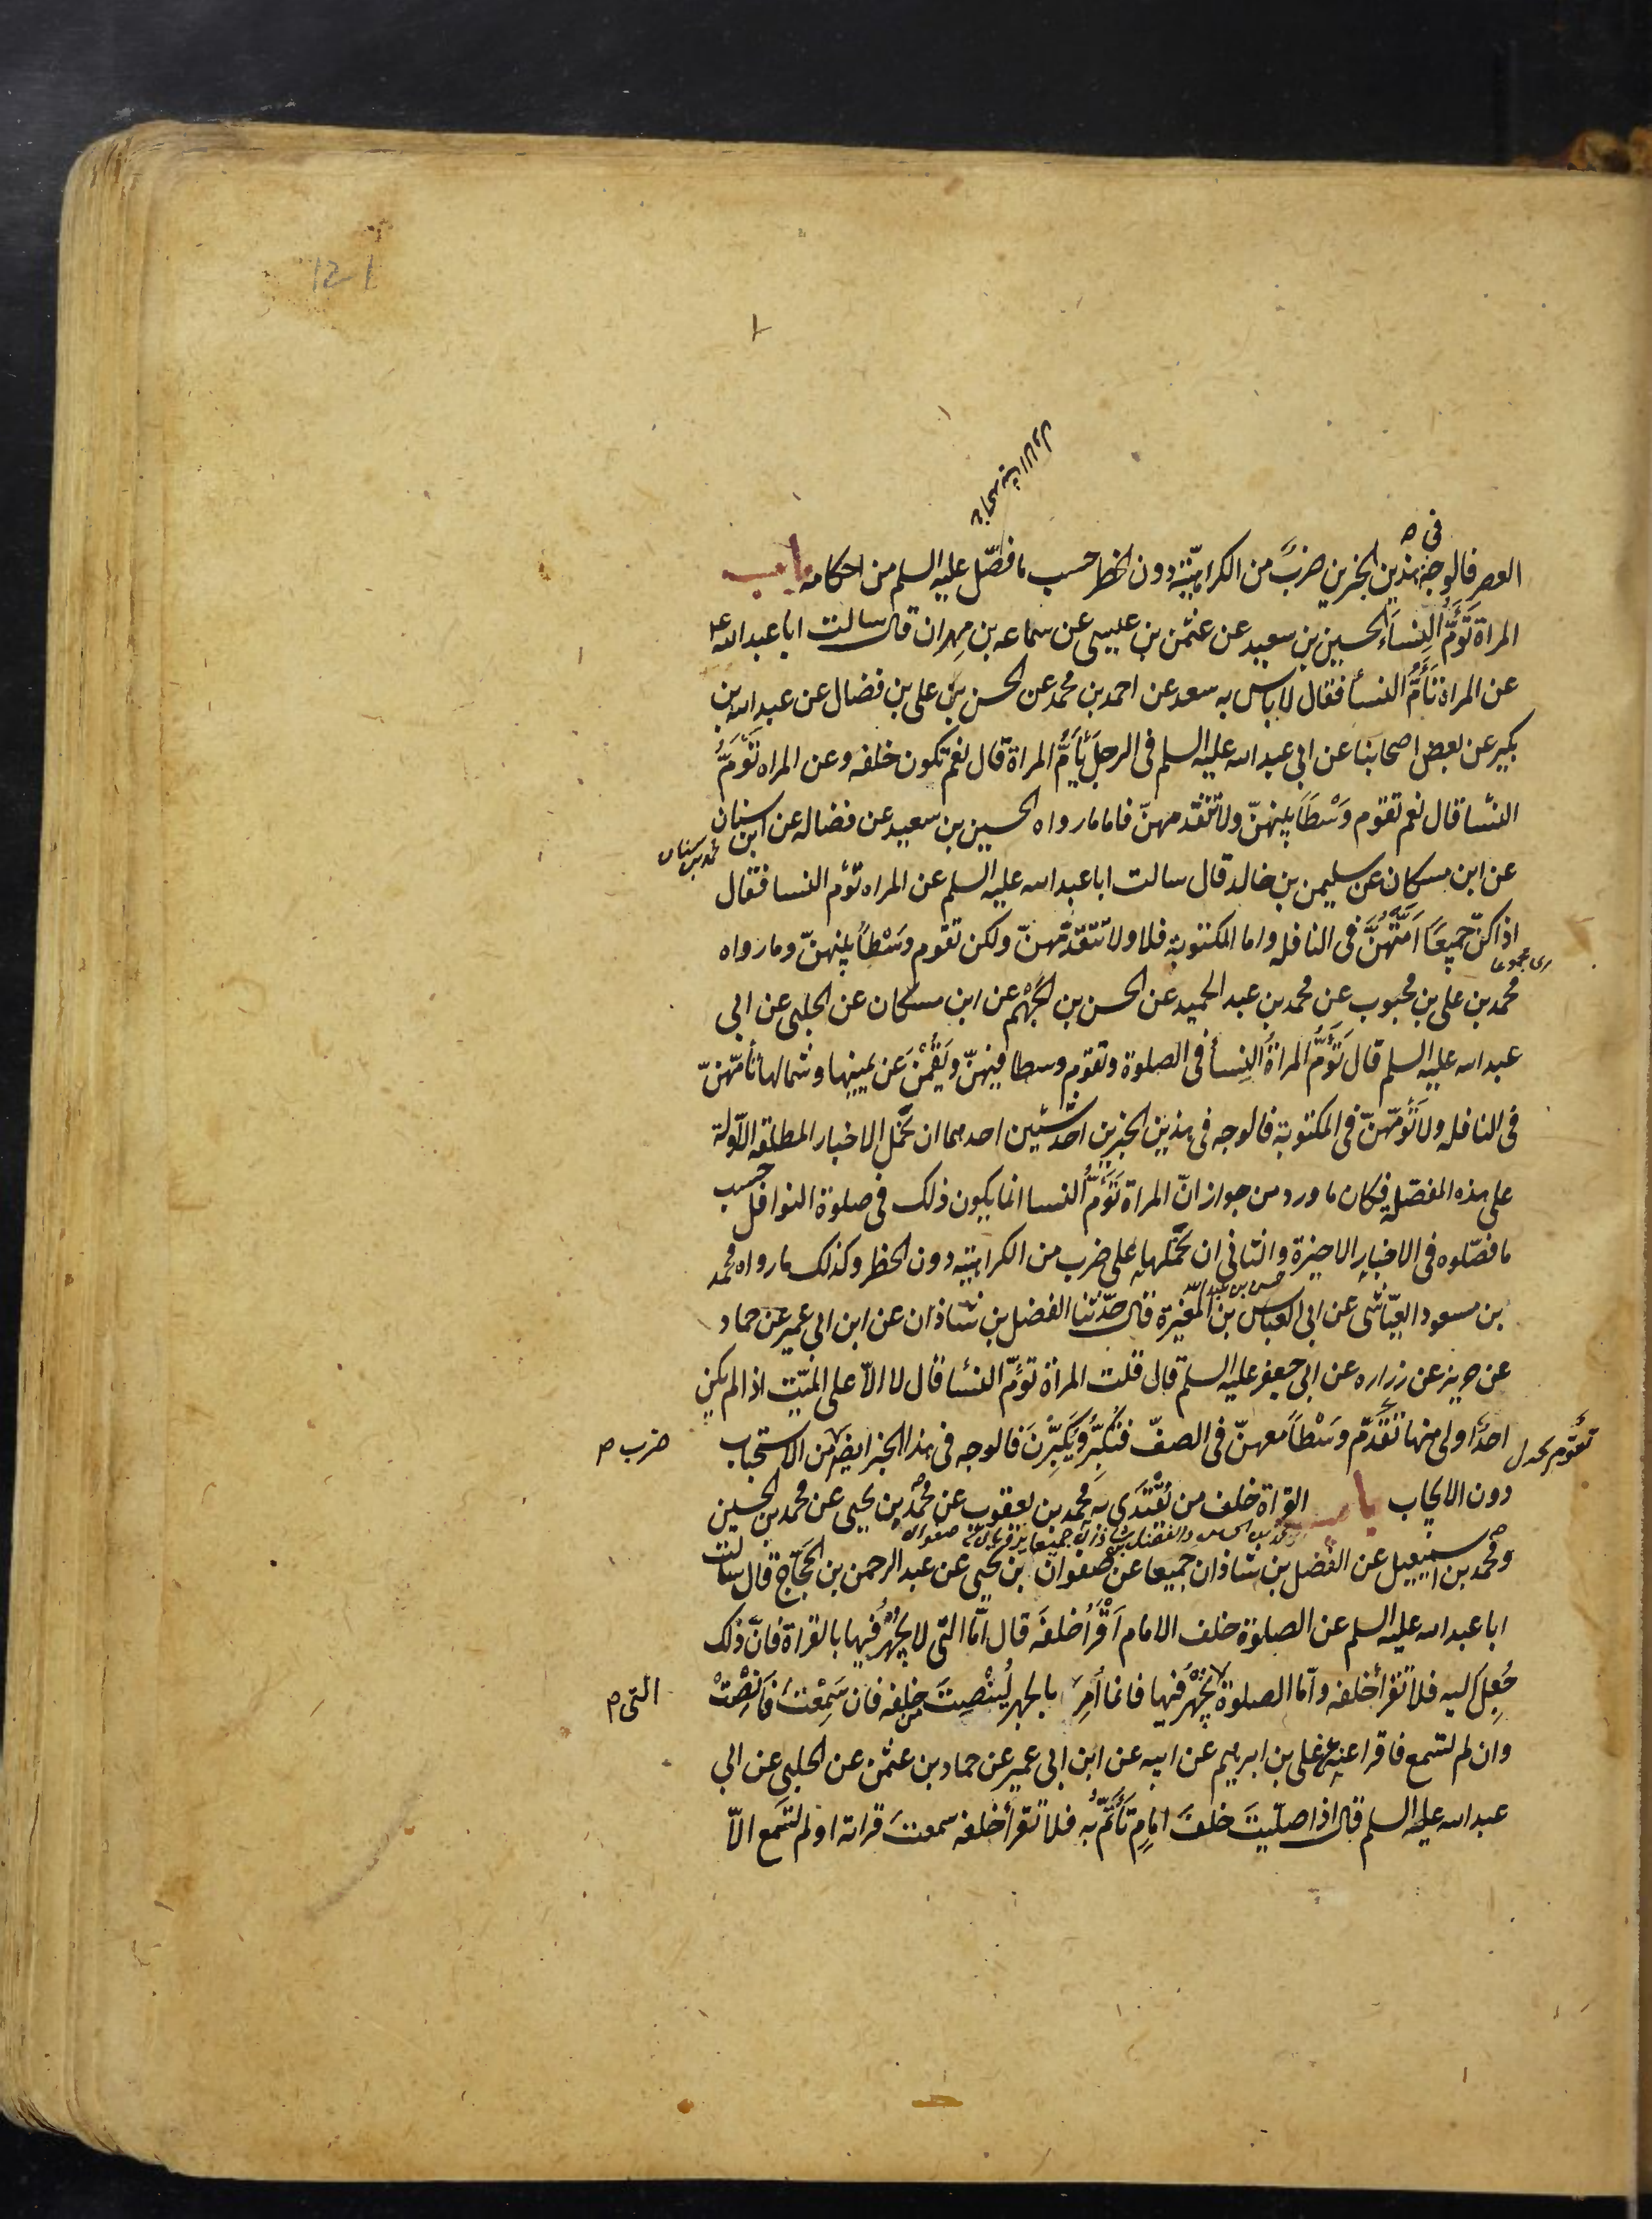 121
في
العصر فالوجه هذين الخبرين ضربٌ من الكراهيّة دون الحظر حسب ما فصّل عليه السلم من احكامه باب
المراة تؤمُّ النساءَ الحسين بن سعيد عن عثمن بن عيسى عن سماعه بن مهران قال سالت ابا عبد الله ع
عن المراة تأمُّ النسأ فقال لا باس به سعد عن احمد بن محمد عن الحسن بن على بن فضال عن عبد الله بن
بكير عن بعض اصحابنا عن ابي عبد الله عليه السلم في الرجل يأمُّ المراة قال نعم تكون خلفه وعن المراه تؤمّ
النسٔا قال نعم تقوم وَسْطاً بينهنّ ولا تتقدّمهنّ فاما ما رواه الحسين بن سعيد عن فضاله عن ابن سنان
محمد بن سنان
عن ابن مسكان عن سليمن بن خالد قال سالت ابا عبد الله عليه السلم عن المراه تؤم النسا فقال
اذا كنّ جميعاً اَمَّتْهُنَّ في النافله واما المكتوبة فلا ولا تتقدّمهنّ ولكن تقوم وَسْطاً بينهنّ وما رواه
محمد بن على بن محبوب عن محمد بن عبد الحميد عن الحسن بن الجَهْم عن ابن مسكان عن الحلبي عن ابي
عبد الله عليه السلم قال تَؤُمُّ المراةُ النِسأ في الصلوة وتقوم وسطا فيهنّ ويَقُمْنَ عن يمينها وشمالها تأمّهنّ
في النافله ولا تَؤُمّهنّ في المكتوبة فالوجه في هذين الخبرين احد شيئين احدهما ان نحمل الاخبار المطلقه الاوّلة
على هذه المفصّلة فيكان ما ورد من جواز انّ المراة تَؤمُّ النسا انما يكون ذلك في صلوة النوافل حسب
ما فصّلوه في الاخبار الاخيرة والثاني ان نحملها على ضرب من الكراهيّة دون الحظر وكذلك ما رواه محمد
بن مسعود العيّاشي عن ابي العباس بن المغيرة قال حدّثنا الفضل بن شاذان عن ابن ابي عمير عن حماد
عن حريز عن زراره عن ابي جعفر عليه السلم قال قلت المراة تؤمّ النسٔا قال لا الاّ على الميّت اذا لم يكن
احدٌ اولى منها تقدّم وَسْطاً معهنّ في الصفّ فتُكبّرُ ويُكَبِّرنَ فالوجه في هذا الخبر ايضا من الاستحباب
ضرب م
دون الايجاب باب القراة خلف من يُقْتَدَى به محمد بن يعقوب عن محمد بن يحيى عن محمد بن الحسين
ومحمد بن اسمعيل عن الفضل بن شاذان جميعا عن صفوان بن يحيى عن عبد الرحمن بن الحجّاج قال سالت
ابا عبد الله عليه السلم عن الصلوة خلف الامام اَقْرَأُ خلفَه قال اَمّا التي لا يُجْهَرُ فيها بالقراة فانّ ذلك
جُعِلَ اليه فلا تقرأ خلفه وامّا الصلوة يُجْهَرُ فيها فانما اُمِرَ بالجهر لِيُنْصِتَ من خلفه فان سَمِعْتَ فَاَنْصِتْ
التي م
وان لم تسمع فاقرا عنه على بن ابرهيم عن ابيه عن ابن ابي عمير عن حماد بن عثمن عن الحلبي عن ابي
عبد الله عليه السلم قال اذا صلّيتَ خلفَ امامٍ تَأْتَمُّ به فلا تقرأ خلفه سمعتَ قراته اولم تسمع الاّ